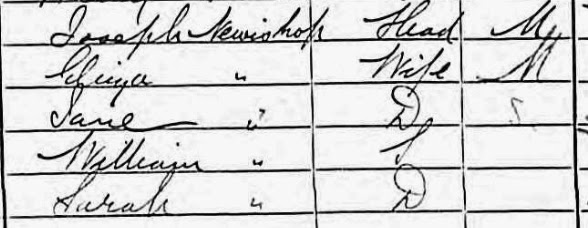 Joseph Newishop Head M
Eliza " Wife M
Jane " D S.
William " S
Sarah " D